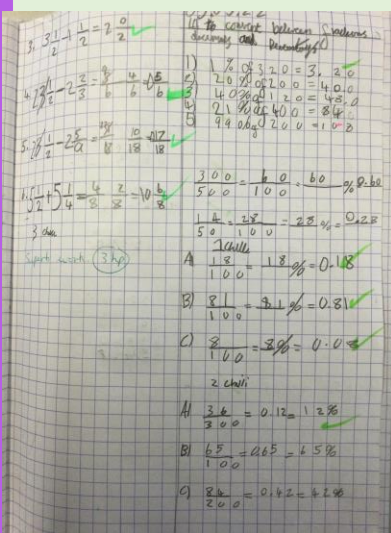 3. 3 1/2 - 1 1/2 = 2 0/2
6. 5 1/2 + 5 1/4 = 4/8 2/8 = 10 6/8
3 chilli
Superb work 3hp
to convert between fractions
decimals and percentages
1) 1% of 320 = 3.20
2) 20% of 200 = 40.0
3) 40% of 120 = 48.0
4) 21% of 400 = 84
5) 99% of 200 = 198
300/500 = 60/100 = 60% 0.60
14/50 = 28/100 = 28% = 0.28
1 chilli
A 18/100 = 18% = 0.18
B) 81/100 = 81% = 0.81
C) 8/100 = 8% = 0.08
2 chilli
A) 36/300 = 0.12 = 12%
B) 65/100 = 0.65 = 65%
C) 84/200 = 0.42 = 42%